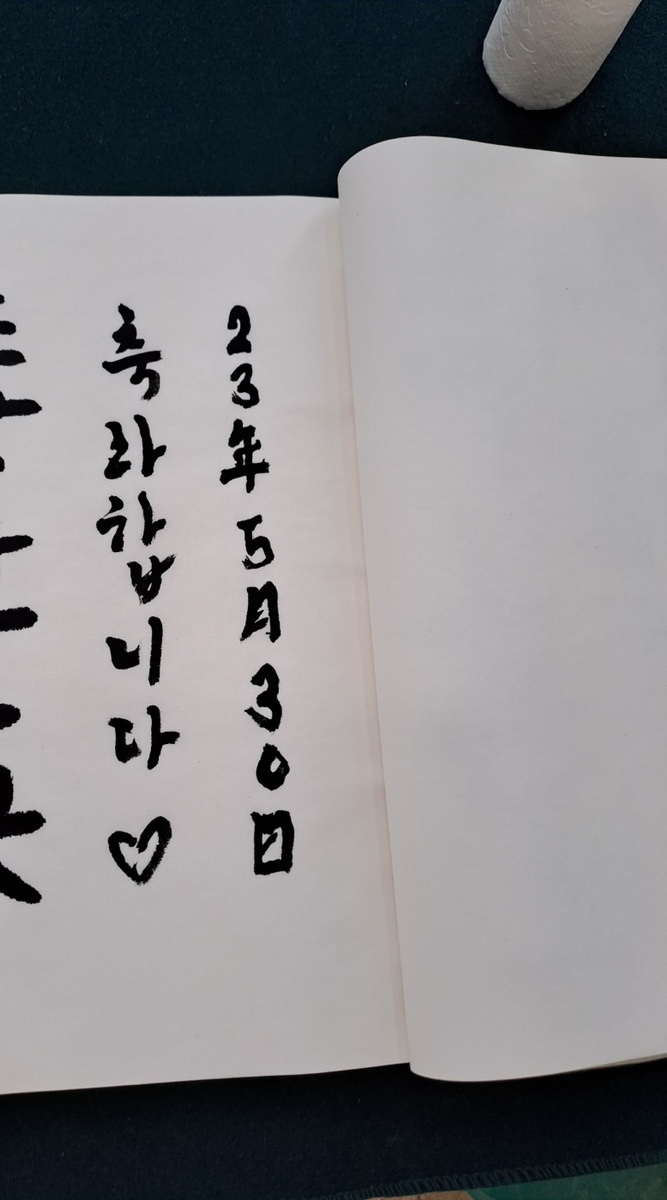 축하합니다♡
23年5月30日